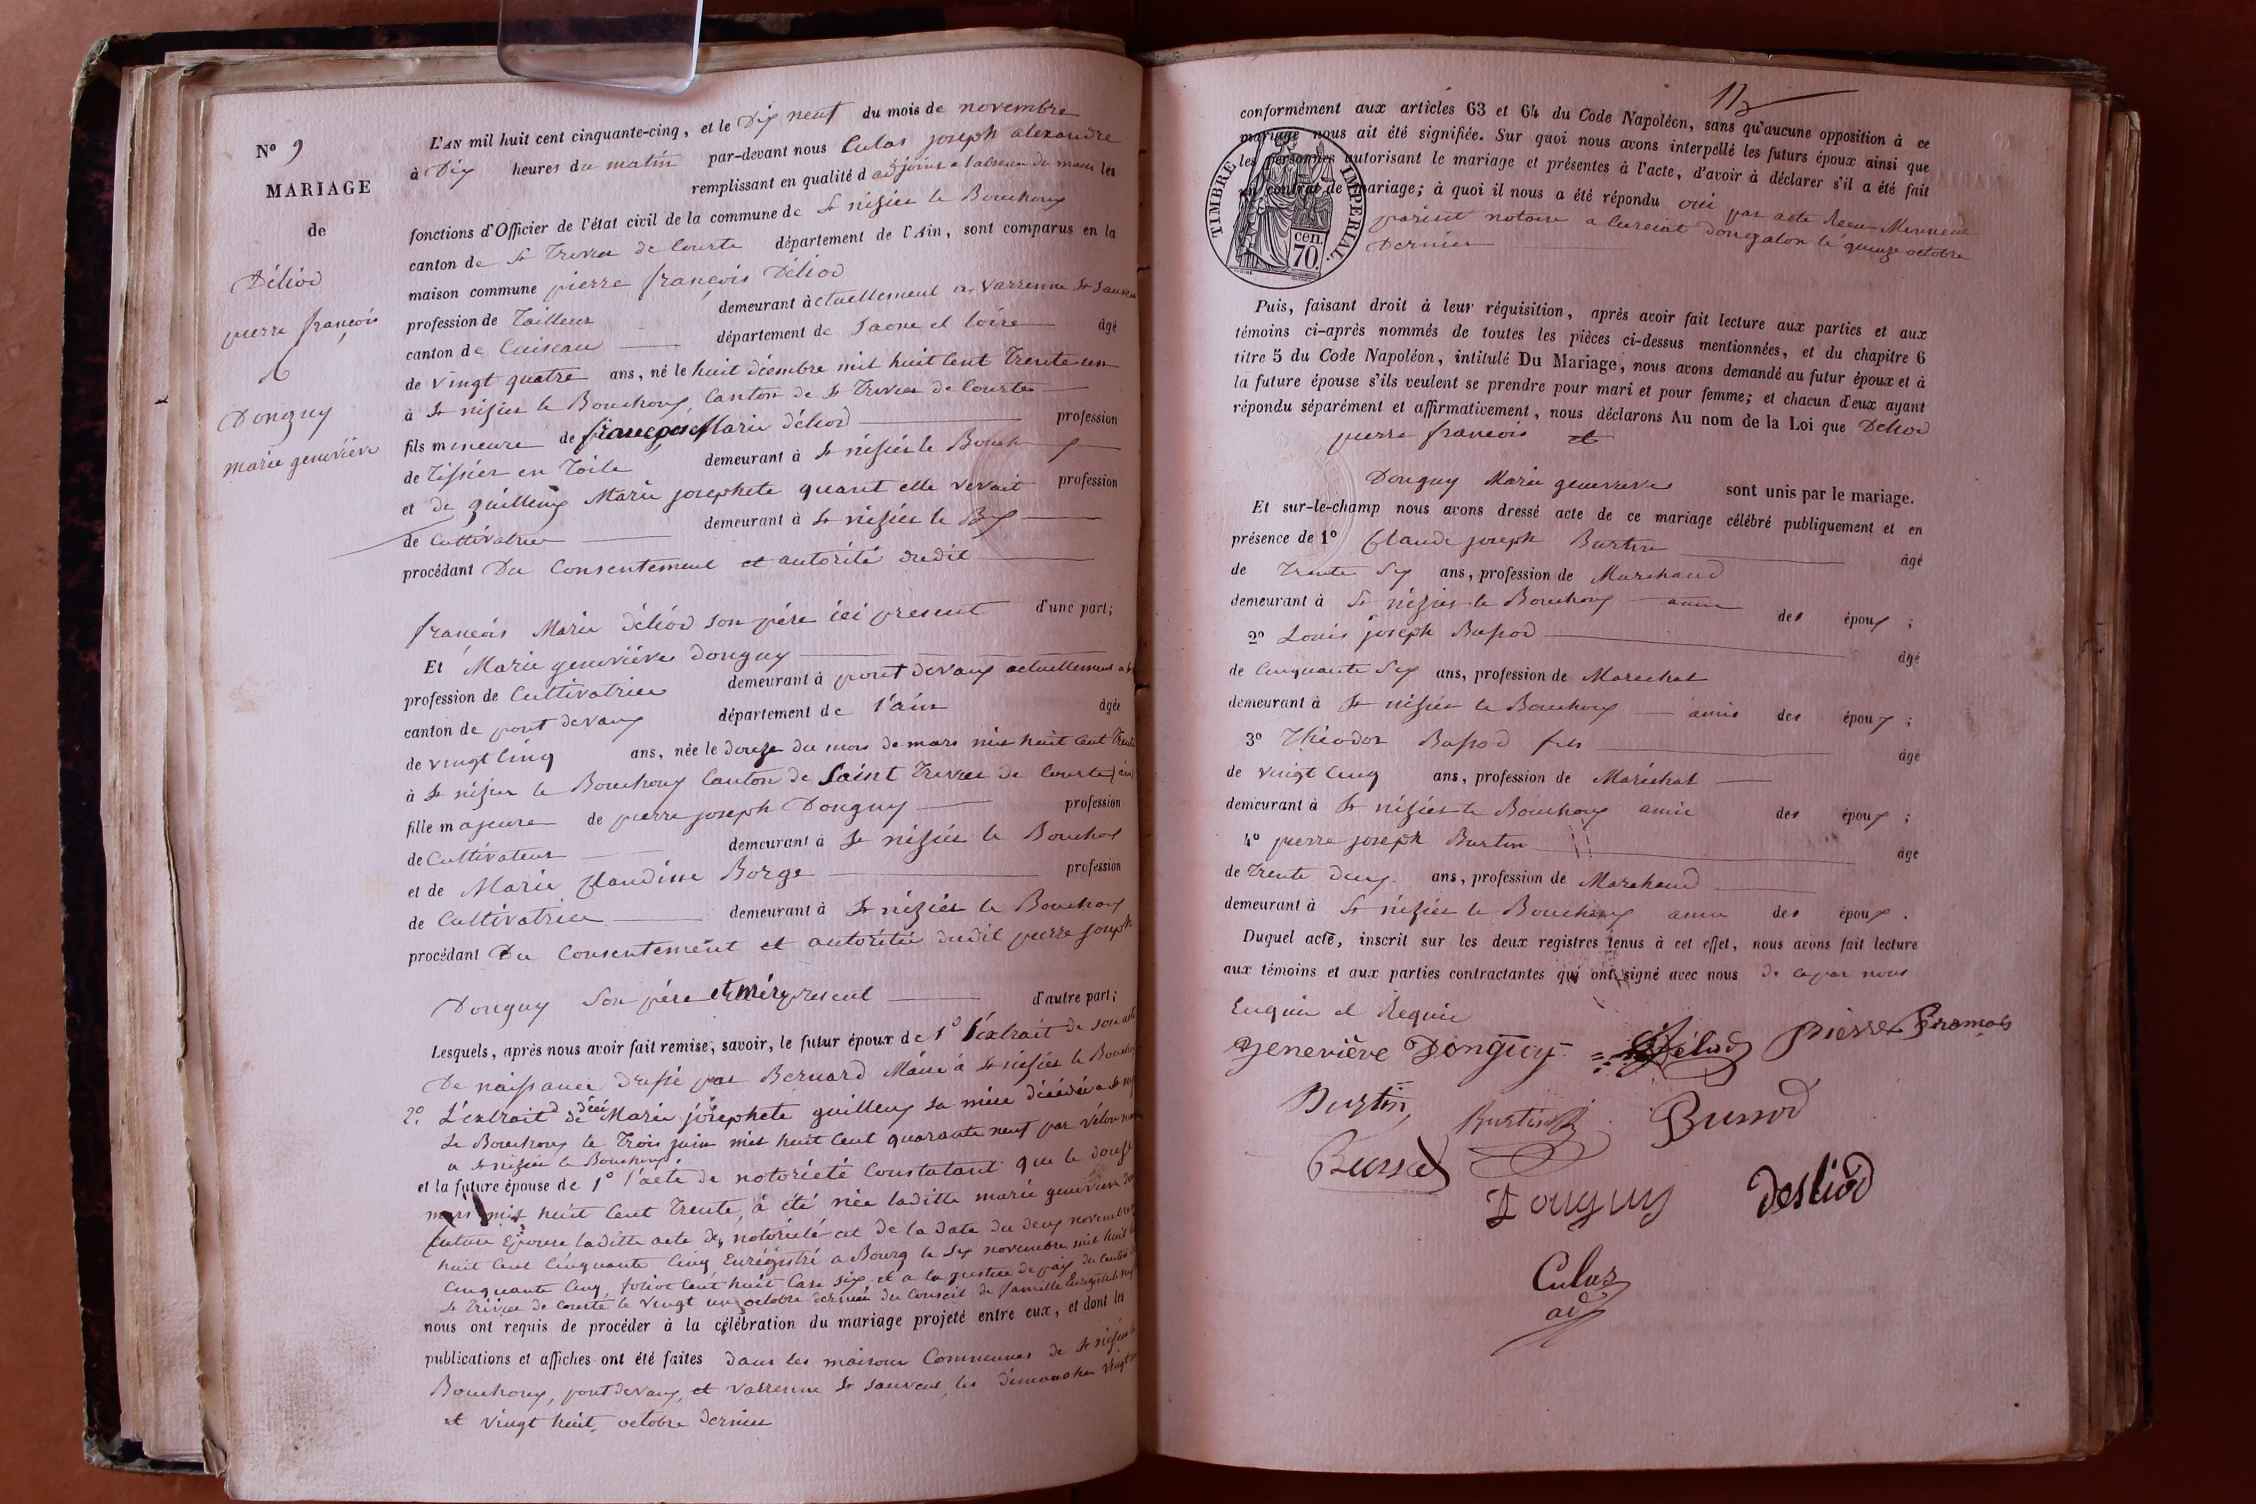 N° 9
MARIAGE
de
Déliod
pierre françois
&
Donguy
marie geneviève
L'AN mil huit cent cinquante-cinq, et le Dix neuf du mois de novembre
à Dix heures du matin par-devant nous Culas joseph alexandre
remplissant en qualité d'adjoint a l'absence du maire les
fonctions d'Officier de l'état civil de la commune de St nizier le Bouchoux
canton de St Trivier de Courte département de l'Ain, sont comparus en la
maison commune pierre françois Déliod
profession de Tailleur demeurant actuellement a Varrenne St Sauveur
canton de Cuiseau département de Saone et loire âgé
de vingt quatre ans, né le huit décembre mil huit cent Trente un
à St nizier le Bouchoux, Canton de St Trivier de Courtes
fils mineure de françois Marie déliod profession
de Tissier en Toile demeurant à St nizier le Bouch
et de guilleux Marie josephete quant elle vivait profession
de Cultivatrice demeurant à St nizier le Bx
procédant Du Consentement et autorité dudit
françois Marie déliod son père ici présent d'une part;
Et Marie geneviève donguy
profession de Cultivatrice demeurant à pont devaux actuellement a
canton de pont devaux département de l'ain âgée
de vingt cinq ans, née le douze du mois de mars mil huit cent Trente
à St nizier le Bouchoux Canton de Saint Trivier de Courte (ain)
fille majeure de pierre joseph Donguy profession
de Cultivateur demeurant à St nizier le Bouchoux
et de Marie Claudine Borge profession
de Cultivatrice demeurant à St nizier le Bouchoux
procédant Du Consentement et autoritée dudit pierre joseph
Donguy son père et mère présent d'autre part;
Lesquels, après nous avoir fait remise, savoir, le futur époux de 1° l'extrait de son acte
De naissance Dressé par Bernard Maire à St nizier le Bouchoux
2° L'extrait de décé de Marie josephete guilleux sa mère décédée a St
le Bouchoux le Trois juin mil huit cent quarante neuf par
a St nizier le Bouchoux
et la future épouse de 1° l'acte de notoriété Constatant que le douze
mars mil huit cent Trente, à été née laditte marie geneviève
future Epouse laditte acte de notoriété est de la date du deux novembre
huit cent Cinquante Cinq Enregistré a Bourg le six novembre mil huit
Cinquante Cinq, folio cent huit Case six, et a la justice de paix du Canton
St Trivier de Courte le vingt un octobre dernier du Conseil de famille Enregistré
nous ont requis de procéder à la célébration du mariage projeté entre eux, et dont les
publications et affiches ont été faites dans les maisons Communes de St nizier
Bouchoux, pont devaux, et Varrenne St Sauveur, les dimanches vingt
et vingt huit octobre dernier
conformément aux articles 63 et 64 du Code Napoléon, sans qu'aucune opposition à ce
mariage nous ait été signifiée. Sur quoi nous avons interpellé les futurs époux ainsi que
les personnes autorisant le mariage et présentes à l'acte, d'avoir à déclarer s'il a été fait
un contrat de mariage; à quoi il nous a été répondu oui par acte Recu
notaire a Curciat dongalon le quinze octobre
Dernier
TIMBRE IMPERIAL.
cen.
70.
Puis, faisant droit à leur réquisition, après avoir fait lecture aux parties et aux
témoins ci-après nommés de toutes les pièces ci-dessus mentionnées, et du chapitre 6
titre 5 du Code Napoléon, intitulé Du Mariage, nous avons demandé au futur époux et à
la future épouse s'ils veulent se prendre pour mari et pour femme; et chacun d'eux ayant
répondu séparément et affirmativement, nous déclarons Au nom de la Loi que Déliod
pierre francois et
Donguy Marie genevieve sont unis par le mariage.
Et sur-le-champ nous avons dressé acte de ce mariage célébré publiquement et en
présence de 1° Claude joseph Burtin âgé
de Trente Six ans, profession de Marchand
demeurant à St nizier le Bouchoux amie des époux;
2° Louis joseph Bussod âgé
de Cinquante Six ans, profession de Marechal
demeurant à St nizier le Bouchoux amie des époux;
3° Théodor Bussod fils âgé
de vingt Cinq ans, profession de Maréchal
demeurant à St nizier le Bouchoux amie des époux;
4° pierre joseph Burtin âgé
de Trente deux ans, profession de Marchand
demeurant à St nizier le Bouchoux amie des époux.
Duquel acte, inscrit sur les deux registres tenus à cet effet, nous avons fait lecture
aux témoins et aux parties contractantes qui ont signé avec nous de ce par nous
Enquie et Requie
Geneviève Donguy Déliod pierre francois
Burtin Burtin Bussod
Bussod
Donguy desliod
Culas
adj